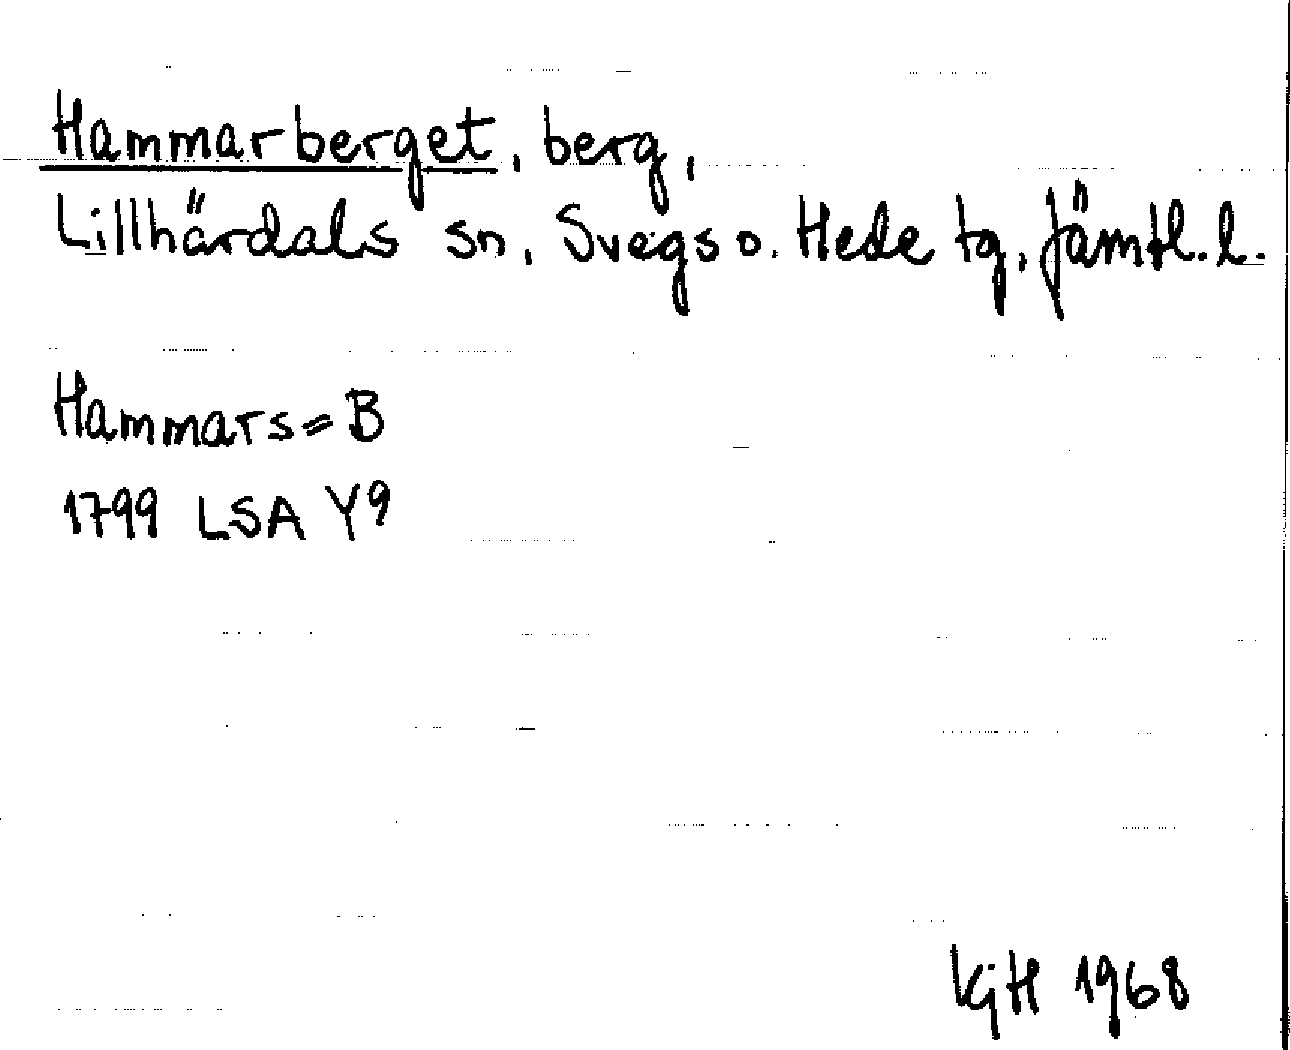 Hammarberget, berg,
Lillhärdals sn, Svegs o. Hede tg, Jämtl. l.
Hammars=B
1799 LSA Y9
KjH 1968